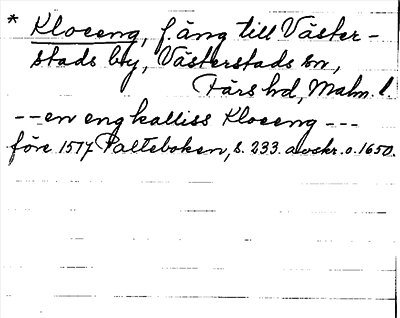 * Kloceng, f. äng till Väster-
stads by, Västerstads sn,
Färs hd, Malm. l.
--- en eng kalliss Kloceng ---
före 1517 Palteboken, s. 233. avskr. o. 1650.